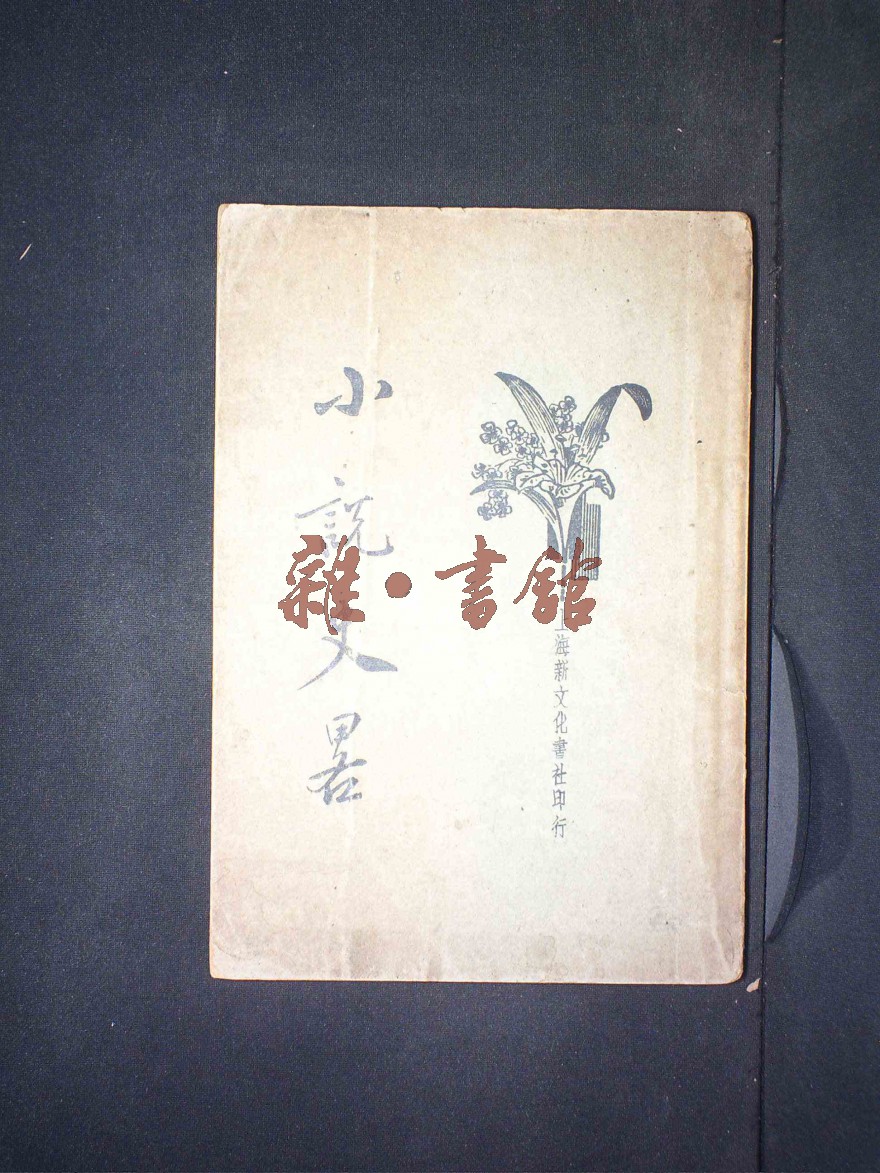 小說畧
上海新文化書社印行
雜·書館